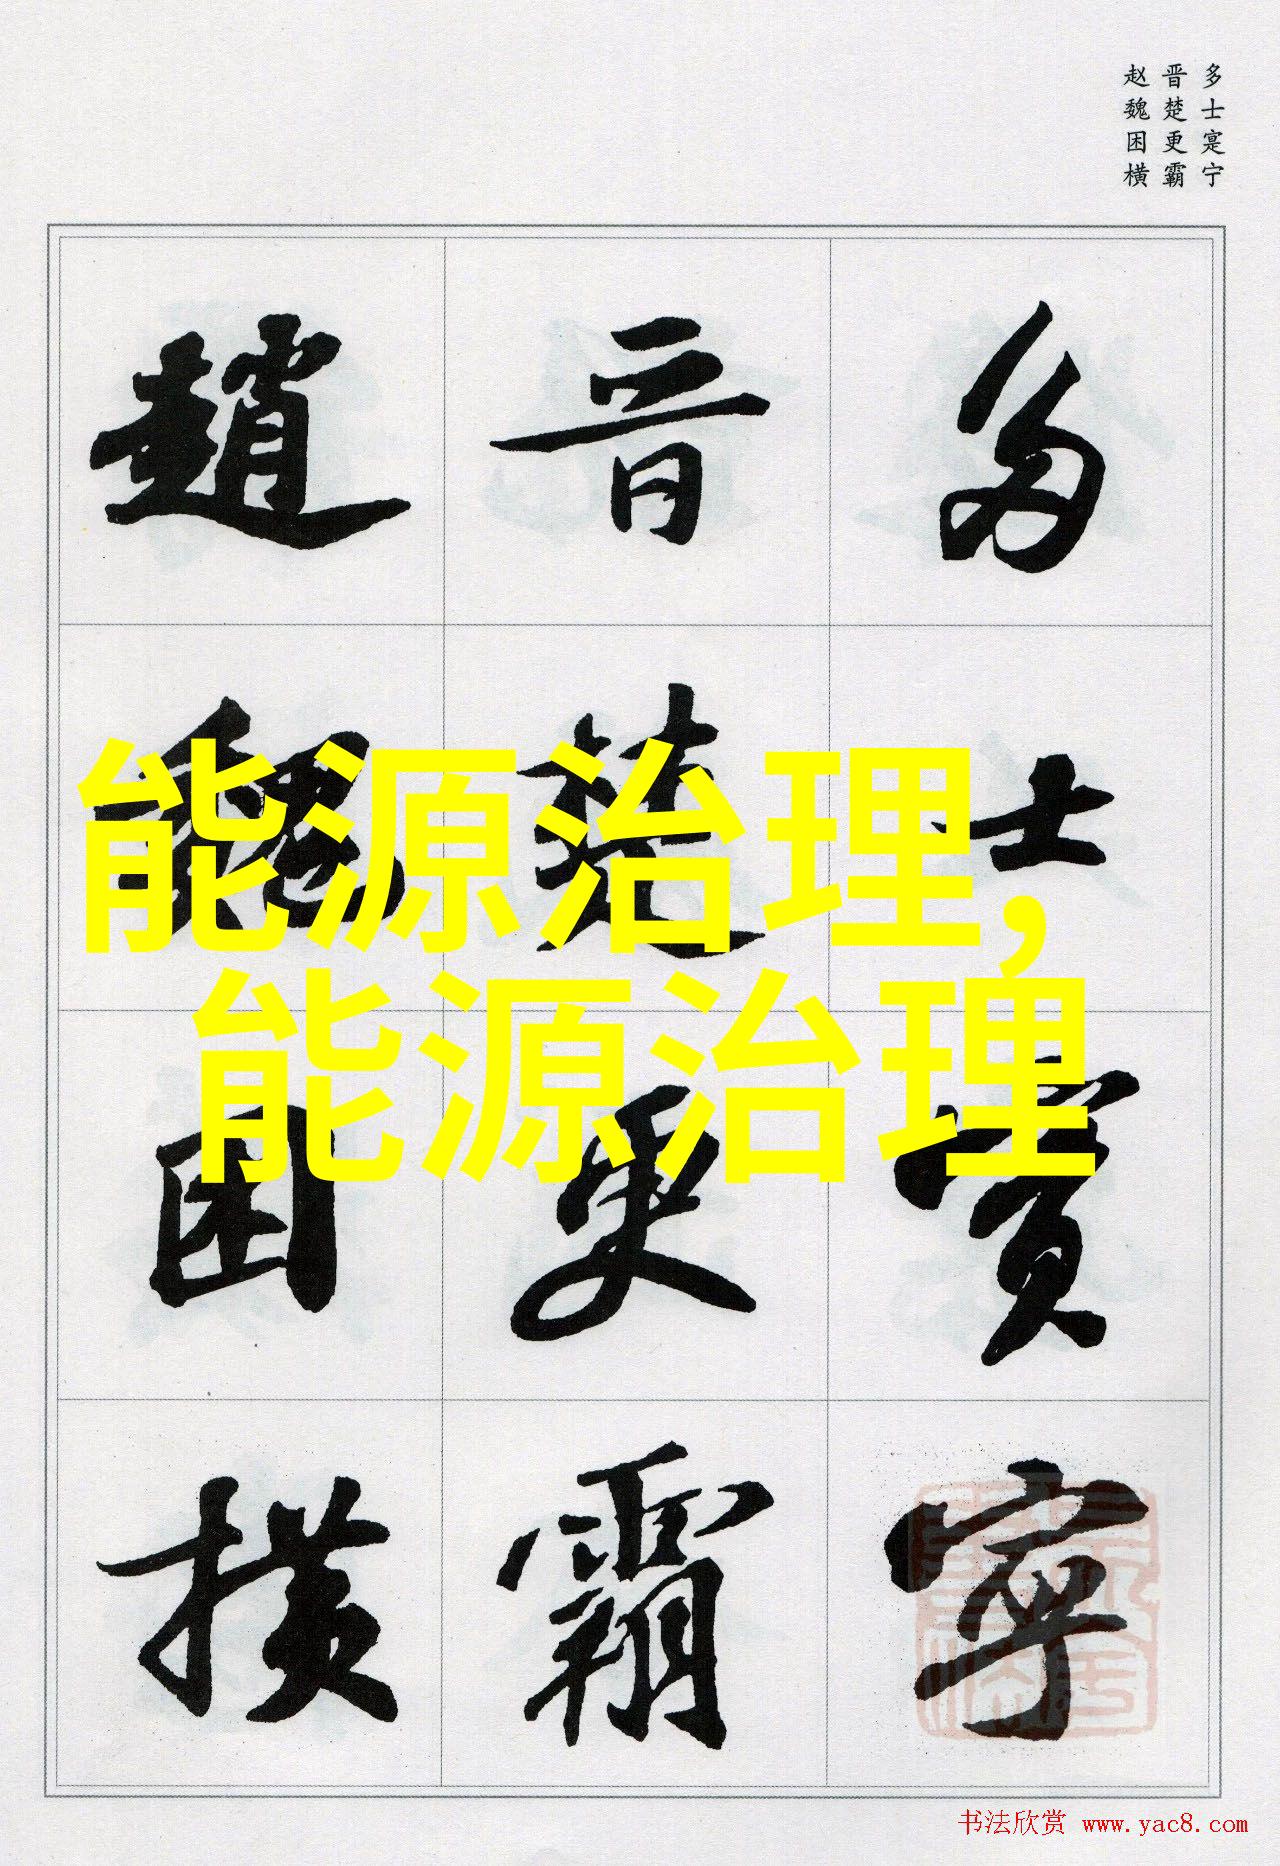 多士寔宁
晋楚更霸
赵魏困横
多士寔寧
晉楚更霸
趙魏困橫
能源治理,
能源治理
书法欣赏 www.yac8.com